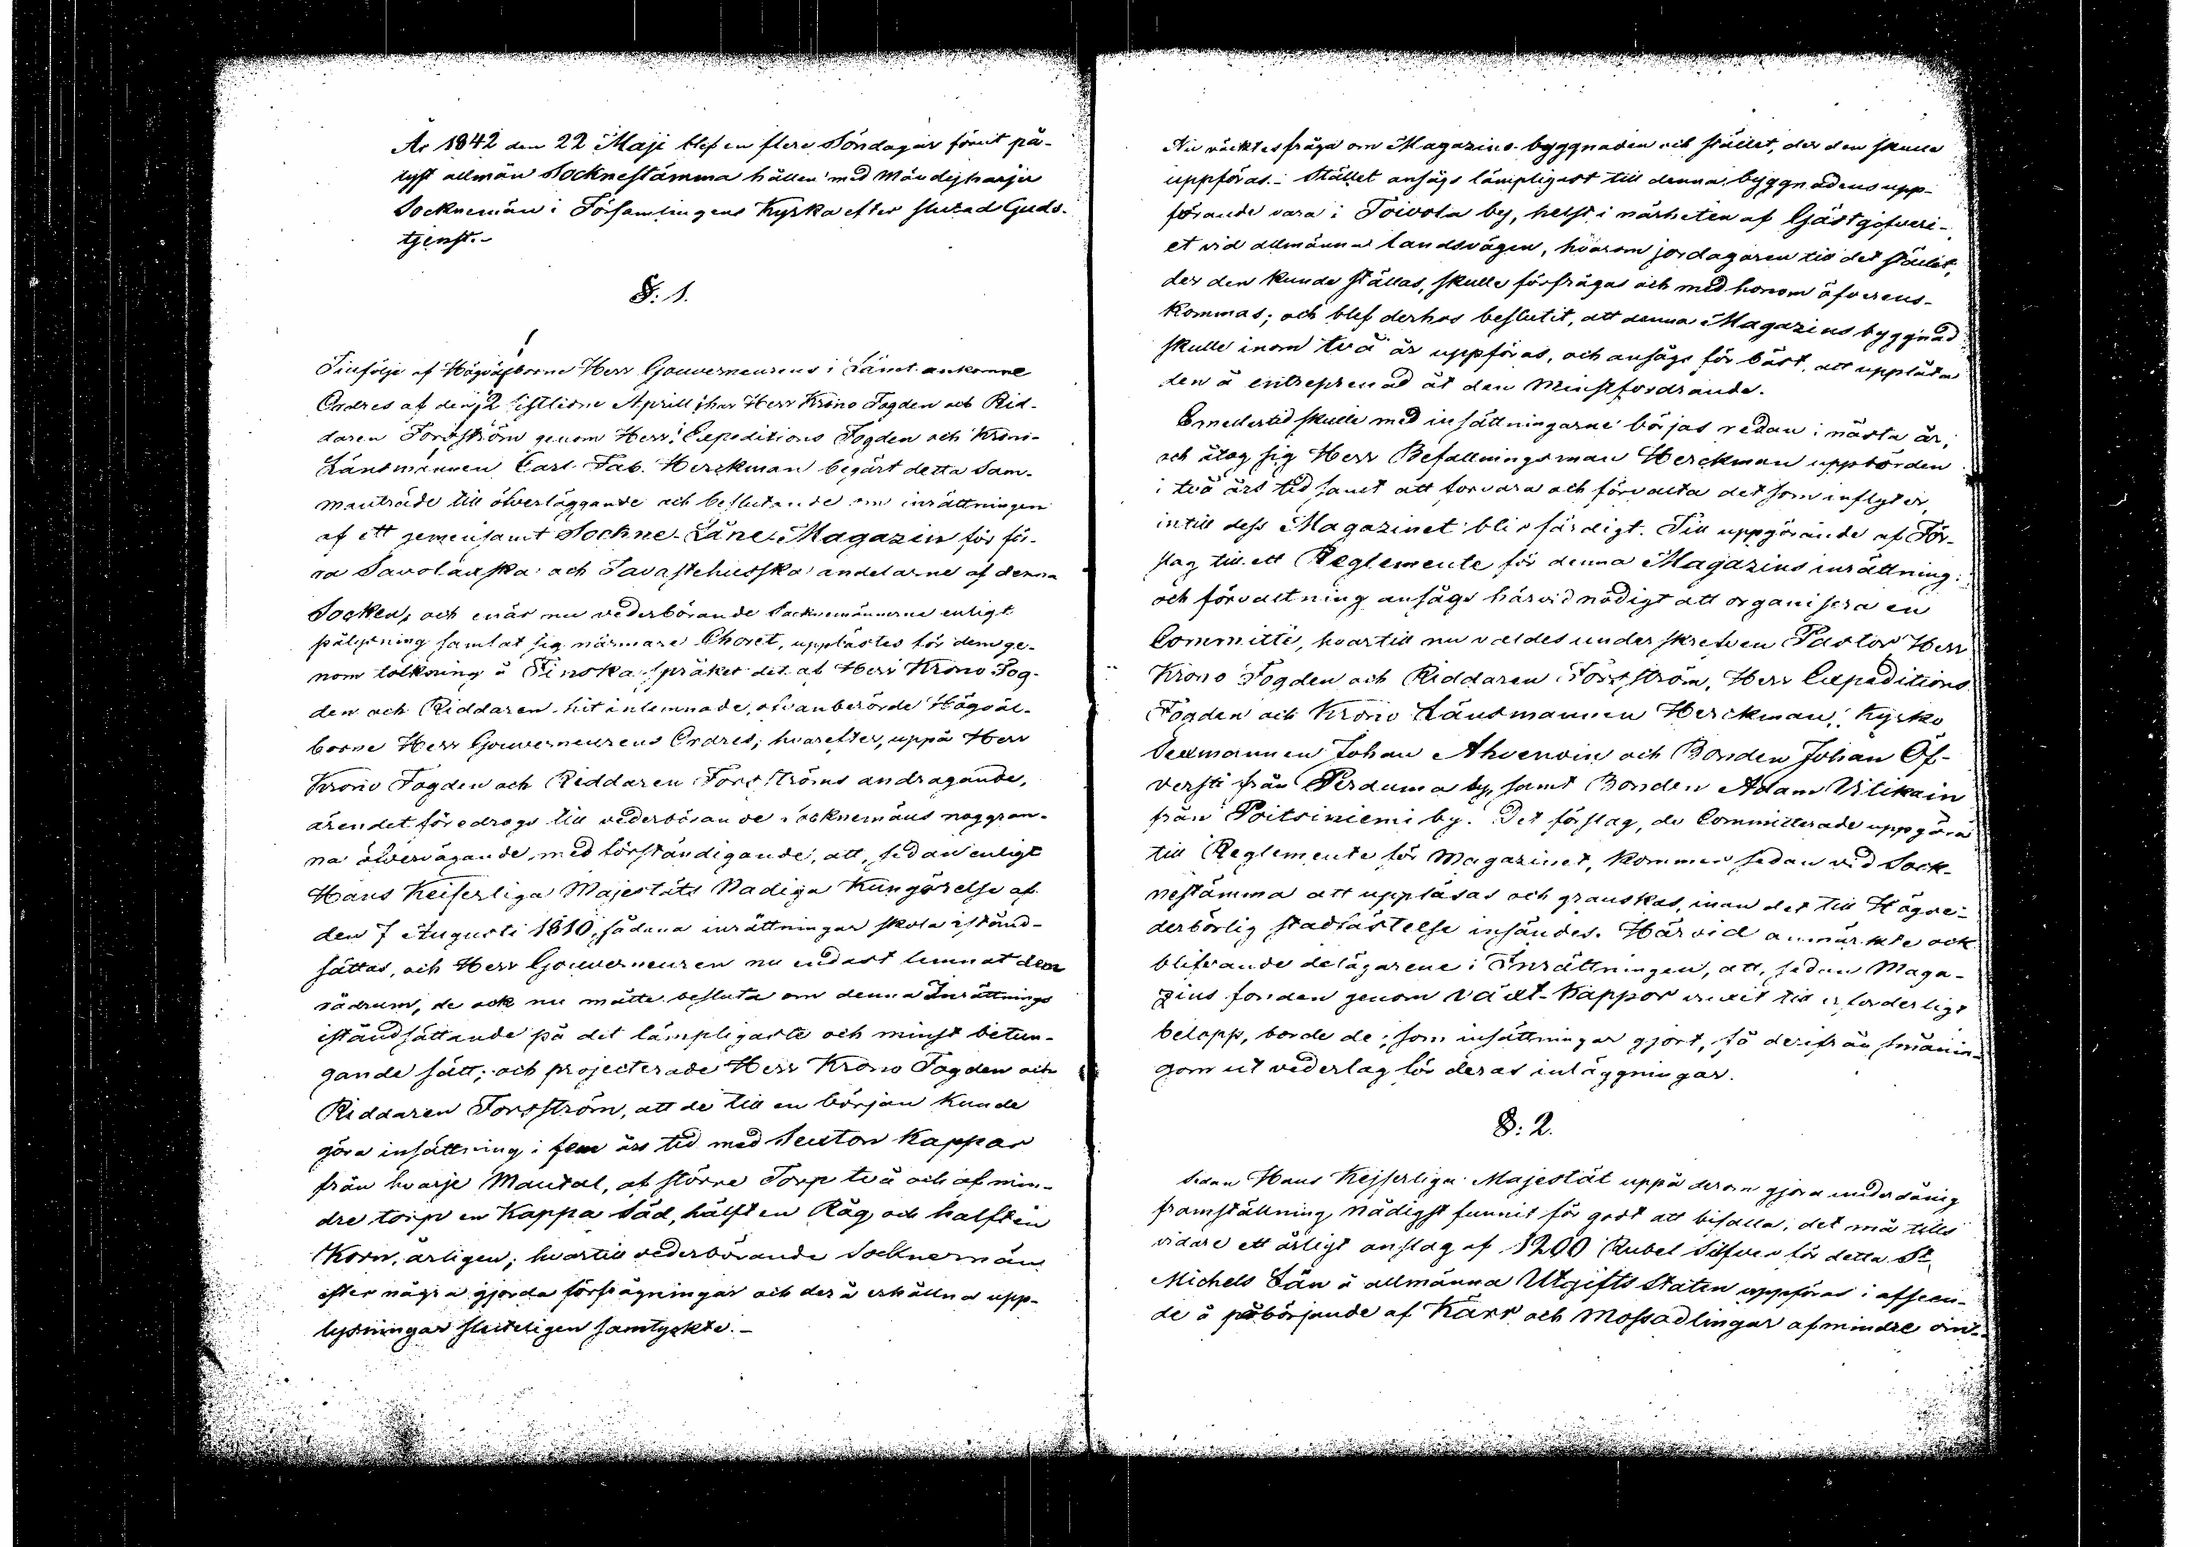 År 1842 den 22 Maji blef en flere Söndagar förut på-
lyst allmän Socknestämma hållen med Mändyharju
Socknemän i Församlingens Kyrka efter slutad Guds-
tjenst.-
§: 1.
Tillfölje af Högvälborne Herr Gouverneurens i Länet ankomne
Ordres af den 12 sistledne Aprill har Herr Krono Fogden och Rid-
daren Forsström genom Herr Expeditions Fogden och Krono-
Länsmannen Carl Fab. Herckman begärt detta Sam-
manträde till öfverläggande och beslutande om inrättningen
af ett gemensamt Sockne-Låne-Magazin för för-
ra Savolaxska och Tavastehusska andelarne af denna
Socken, och enär nu vederbörande Socknemännerne enligt
pålysning samlat sig närmare Choret, upplästes för dem ge-
nom tolkning å Finska språket det af Herr Krono Fog-
den och Riddaren hit inlemnade, ofvanberörde Högväl-
borne Herr Gouverneurens Ordres; hvarefter, uppå Herr
Krono Fogden och Riddaren Forsströms andragande,
ärendet föredrogs till vederbörande Socknemäns noggran-
na öfvervägande, med förständigande, att, sedan enligt
Hans Keiserliga Majestäts Nådiga Kungörelse af
den 7 Augusti 1810, sådana inrättningar skola istånd-
sättas, och Herr Gouverneuren nu endast lemnat dem
rådrum, de ock nu måtte besluta om denna Inrättnings
iståndsättande på det lämpligaste och minst betun-
gande sätt; och projecterade Herr Krono Fogden och
Riddaren Forsström, att de till en början kunde
göra insättning i fem års tid med Sexton Kappar
från hvarje Mantal, af större Torp två och af min-
dre torp en Kappa Säd, hälften Råg och hälften
Korn, årligen; hvartill vederbörande Socknemän
efter några gjorda förfrågningar och derå erhållna upp-
lysningar sluteligen samtyckte.-
Nu väcktes fråga om Magazins-byggnaden och stället, der den skulle
uppföras.- Stället ansågs lämpligast till denna byggnadens upp-
förande vara i Toivola by, helst i närheten af Gästgifveri-
et vid allmänna landsvägen, hvarom jordägaren till det stället,
der den kunde ställas, skulle förfrågas och med honom öfverens-
kommas; och blef derhos beslutit, att denna Magazins byggnad
skulle inom två år uppföras, och ansågs för bäst, att uppläta
den å entreprenad åt den Minstfordrande.
Emellertid skulle med insättningarne börjas redan i nästa år,
och åtog sig Herr Befallningsman Herckman uppbörden
i två års tid samt att förvara och förvalta det som inflyter,
intill dess Magazinet blir färdigt. Till uppgörande af För-
slag till ett Reglemente för denna Magazins inrättning
och förvaltning ansågs härvid nödigt att organisera en
Committé, hvartill nu valdes underskrefven Pastor Herr
Krono Fogden och Riddaren Forsström, Herr Expeditions
Fogden och Krono Länsmannen Herckman, Kyrko
Sexmannen Johan Ahvenoin och Bonden Johan Öf-
versti från Perduma by, samt Bonden Adam Vilikain
från Poitsiniemi by. Det förslag, de Committerade uppgöra
till Reglemente för Magazinet, kommer sedan vid Sock-
nestämma att uppläsas och granskas, innan det till Högve-
derbörlig stadfästelse insändes. Härvid anmärkte ock
blifvande delägarene i Inrättningen, att, sedan Maga-
zins fonden genom växt-kappor vuxit till erforderligt
belopp, borde de, som insättningar gjort, få derifrån småning-
gom ut vederlag för deras inläggningar.
§: 2.
Sedan Hans Kejserliga Majestät uppå derom gjord underdånig
framställning Nådigst funnit för godt att bifalla, det må tills
vidare ett årligt anslag af 1200 Rubel Silfver för detta St
Michels Län å allmänna Utgifts Staten uppföras i afseen-
de å påbörjande af Kärr och Mossodlingar af mindre om-